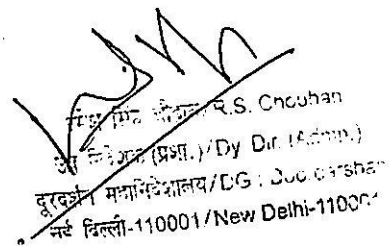 सिंह चौहान/R.S. Chouhan
उप निदेशक (प्रशा.)/Dy Dir. (Admn.)
दूरदर्शन महानिदेशालय/DG : Doordarshan
नई दिल्ली-110001/New Delhi-110001